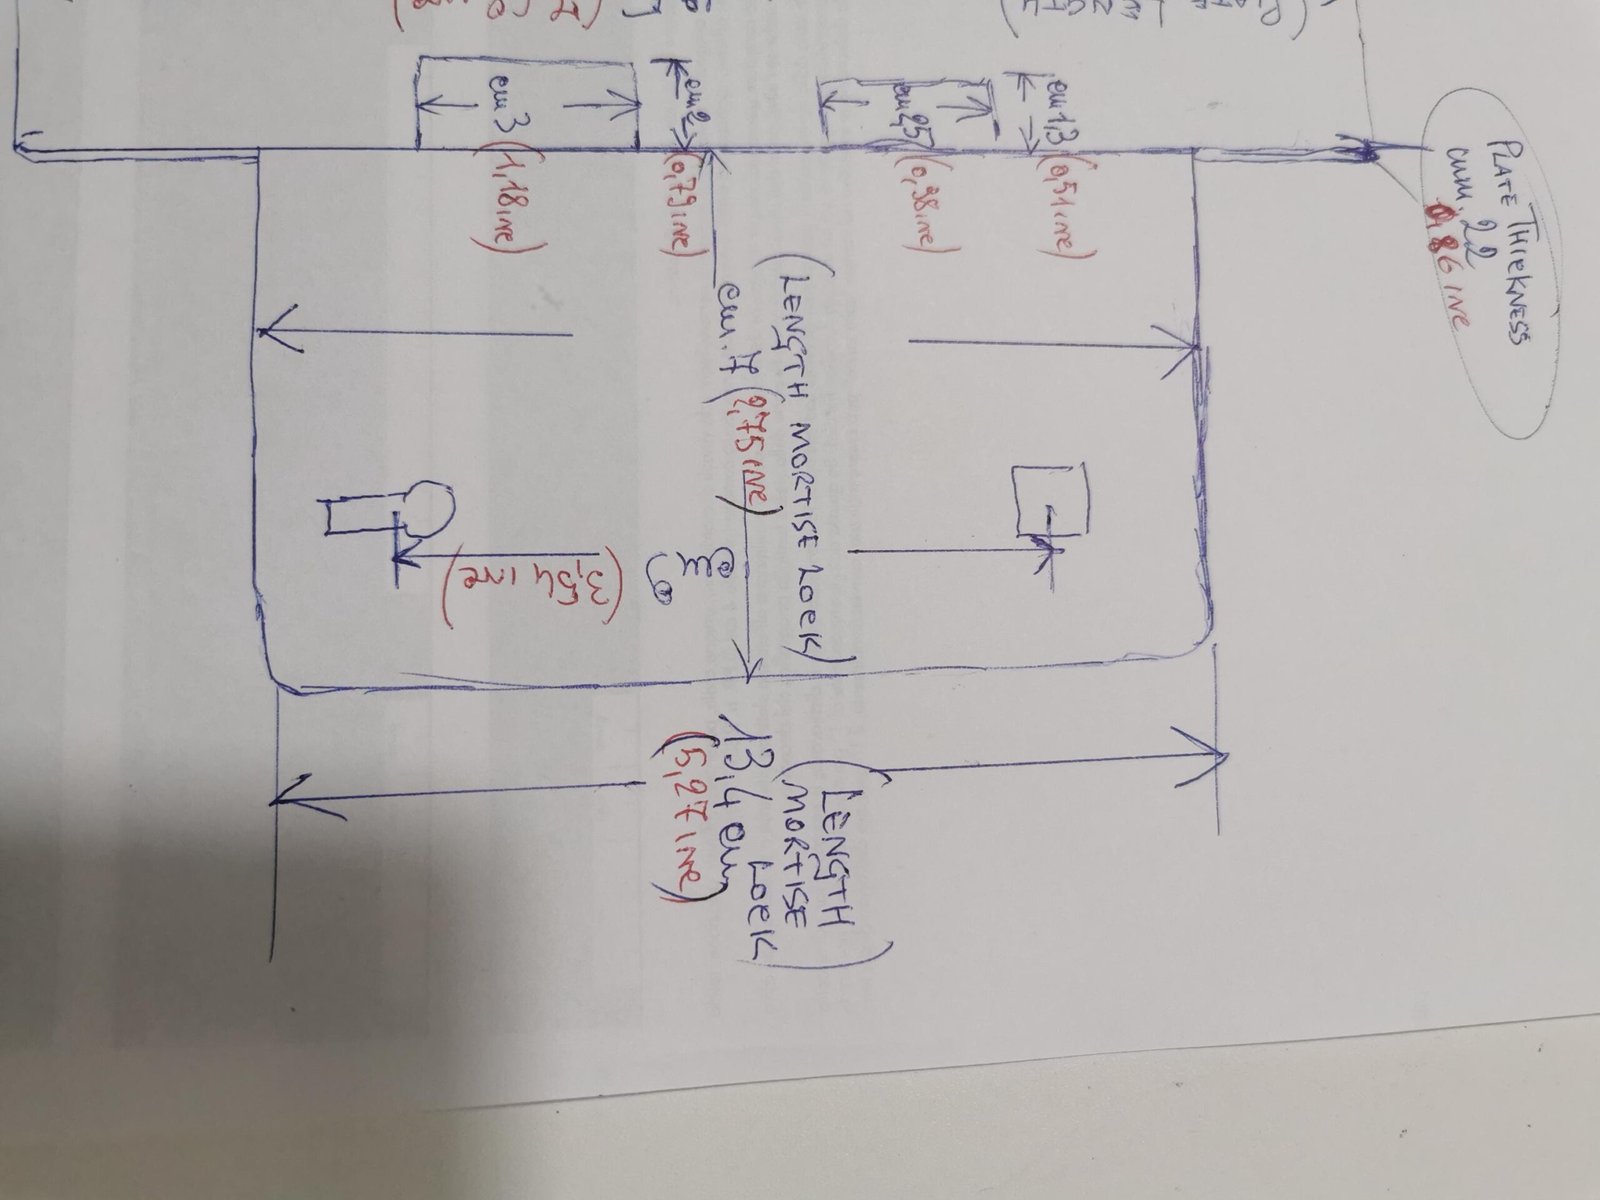 PLATE THIEKNESS
cmm. 22
0,86 INE
cm 1,3
(0,51 INE)
cm 2,5
(0,98 INE)
cm 2
(0,79 INE)
cm 3
(1,18 INE)
(LENGTH MORTISE LOEK)
cm. 7 (2,75 INE)
cm
9
(3,54 INE)
(LENGTH
MORTISE
LOEK)
13,4 cm
(5,27 INE)